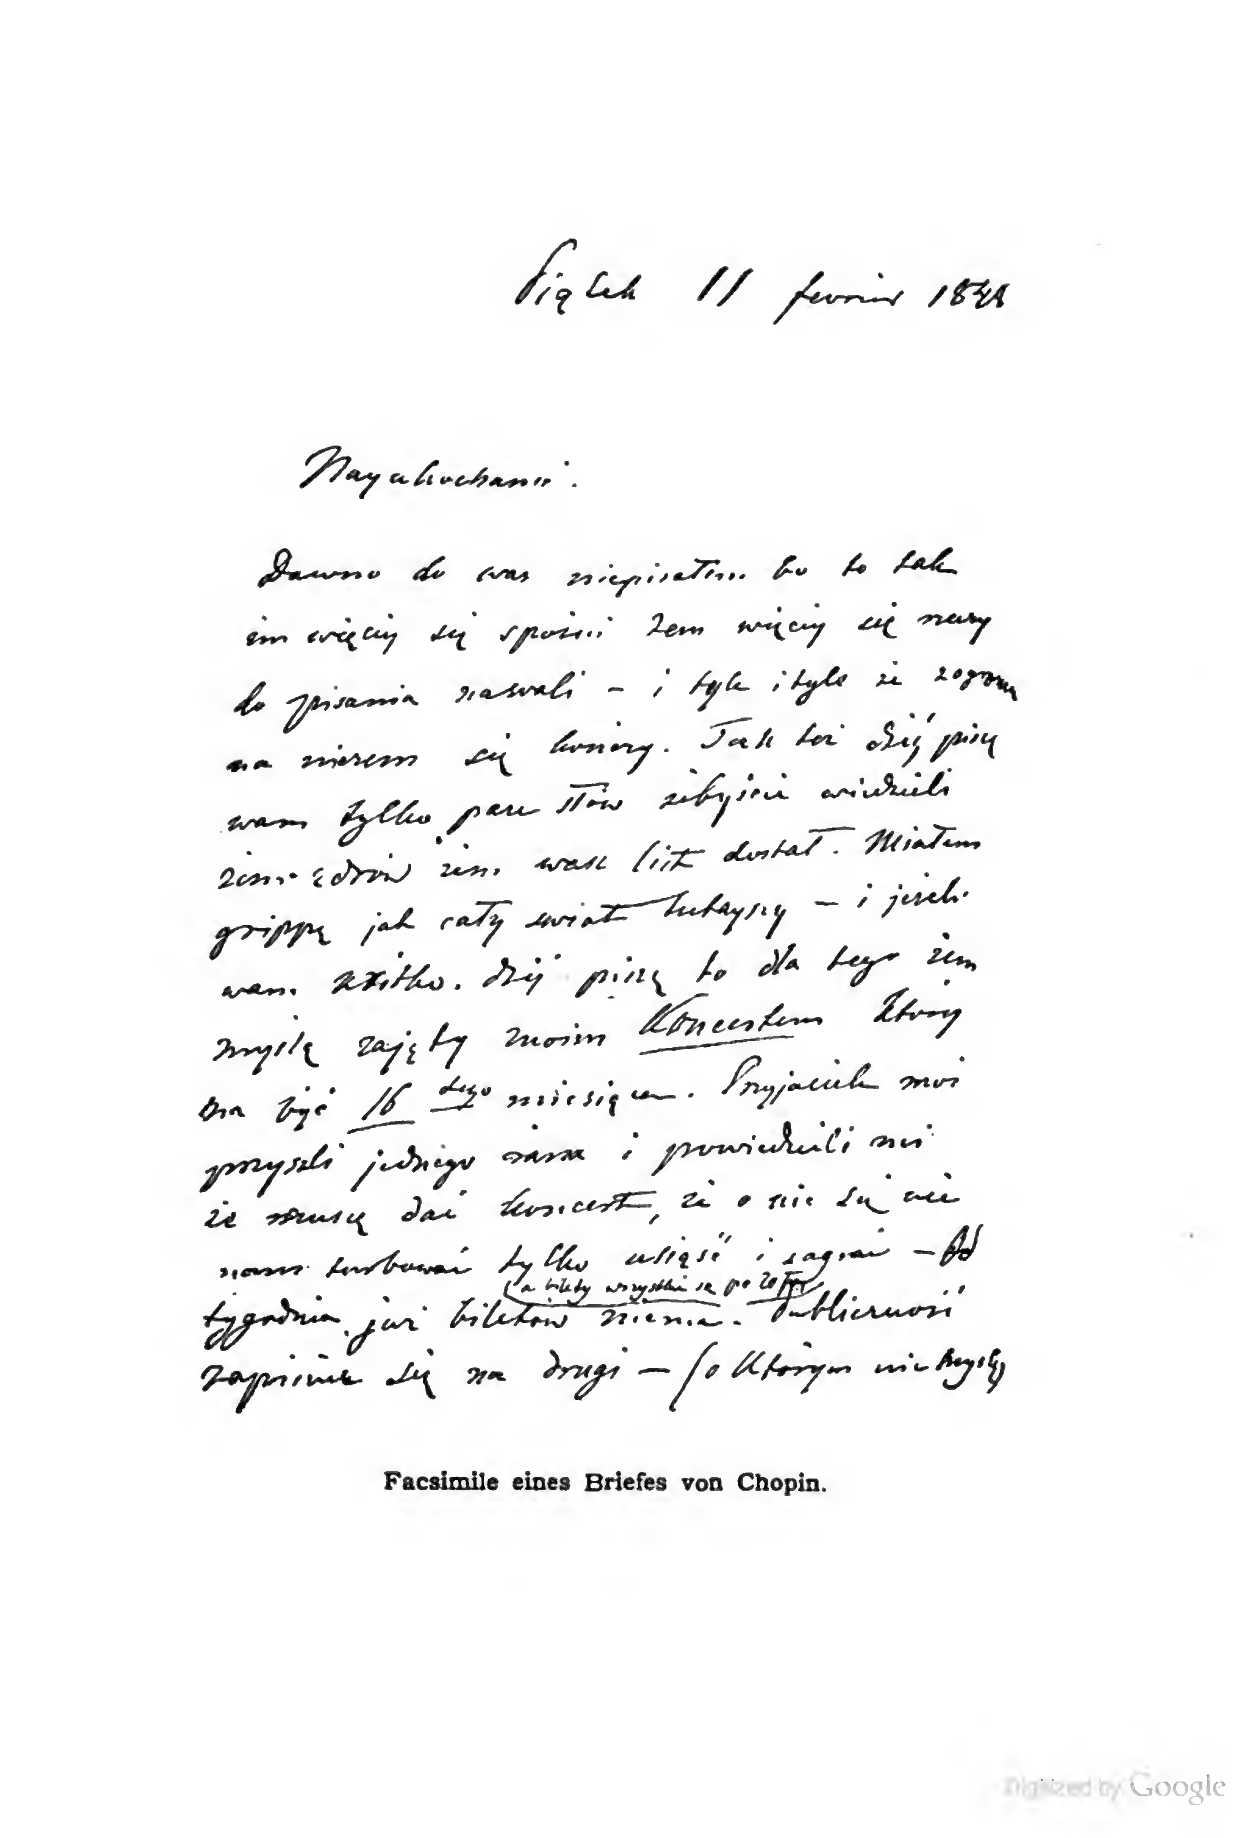 Piątek 11 fevrier 1848
Nayukochansi.
Dawno do was niepisałem bo to tak
im więcej się spóźni tem więcej się rzeczy
do pisania nawali – i tyle i tyle że z ogromu
na niczem się kończy. Tak też dziś piszę
wam tylko parę słów żebyście wiedzieli
żem zdrów żem wasz list dostał. Miałem
grippę jak cały świat tutayszy – i jeżeli
wam krótko dziś piszę to dla tego żem
myślą zajęty moim Koncertem który
ma być 16 tego miesiąca. Przyjaciele moi
przyszli jednego rana i powiedzieli mi
że muszę dać koncert, że o nic się nie
mam turbować tylko usiąść i zagrać – Od
(a bilety wszystkie są po 20 fr.)
tygodnia już biletów niema. Publiczność
zapisuie się na drugi – (o którym nie myślę)
Facsimile eines Briefes von Chopin.
Digitized by Google